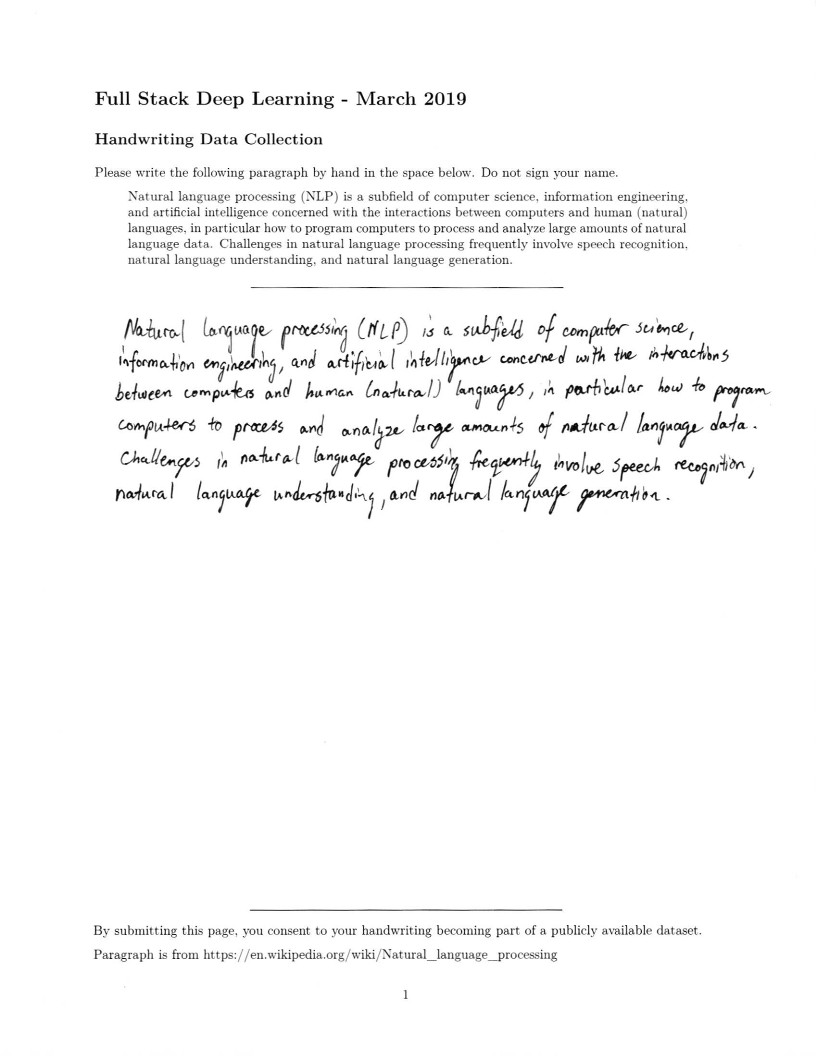 Full Stack Deep Learning - March 2019
Handwriting Data Collection
Please write the following paragraph by hand in the space below. Do not sign your name.
Natural language processing (NLP) is a subfield of computer science, information engineering,
and artificial intelligence concerned with the interactions between computers and human (natural)
languages, in particular how to program computers to process and analyze large amounts of natural
language data. Challenges in natural language processing frequently involve speech recognition,
natural language understanding, and natural language generation.
Natural language processing (NLP) is a subfield of computer science,
information engineering, and artificial intelligence concerned with the interactions
between computers and human (natural) languages, in particular how to program
computers to process and analyze large amounts of natural language data.
Challenges in natural language processing frequently involve speech recognition,
natural language understanding, and natural language generation.
By submitting this page, you consent to your handwriting becoming part of a publicly available dataset.
Paragraph is from https://en.wikipedia.org/wiki/Natural_language_processing
1